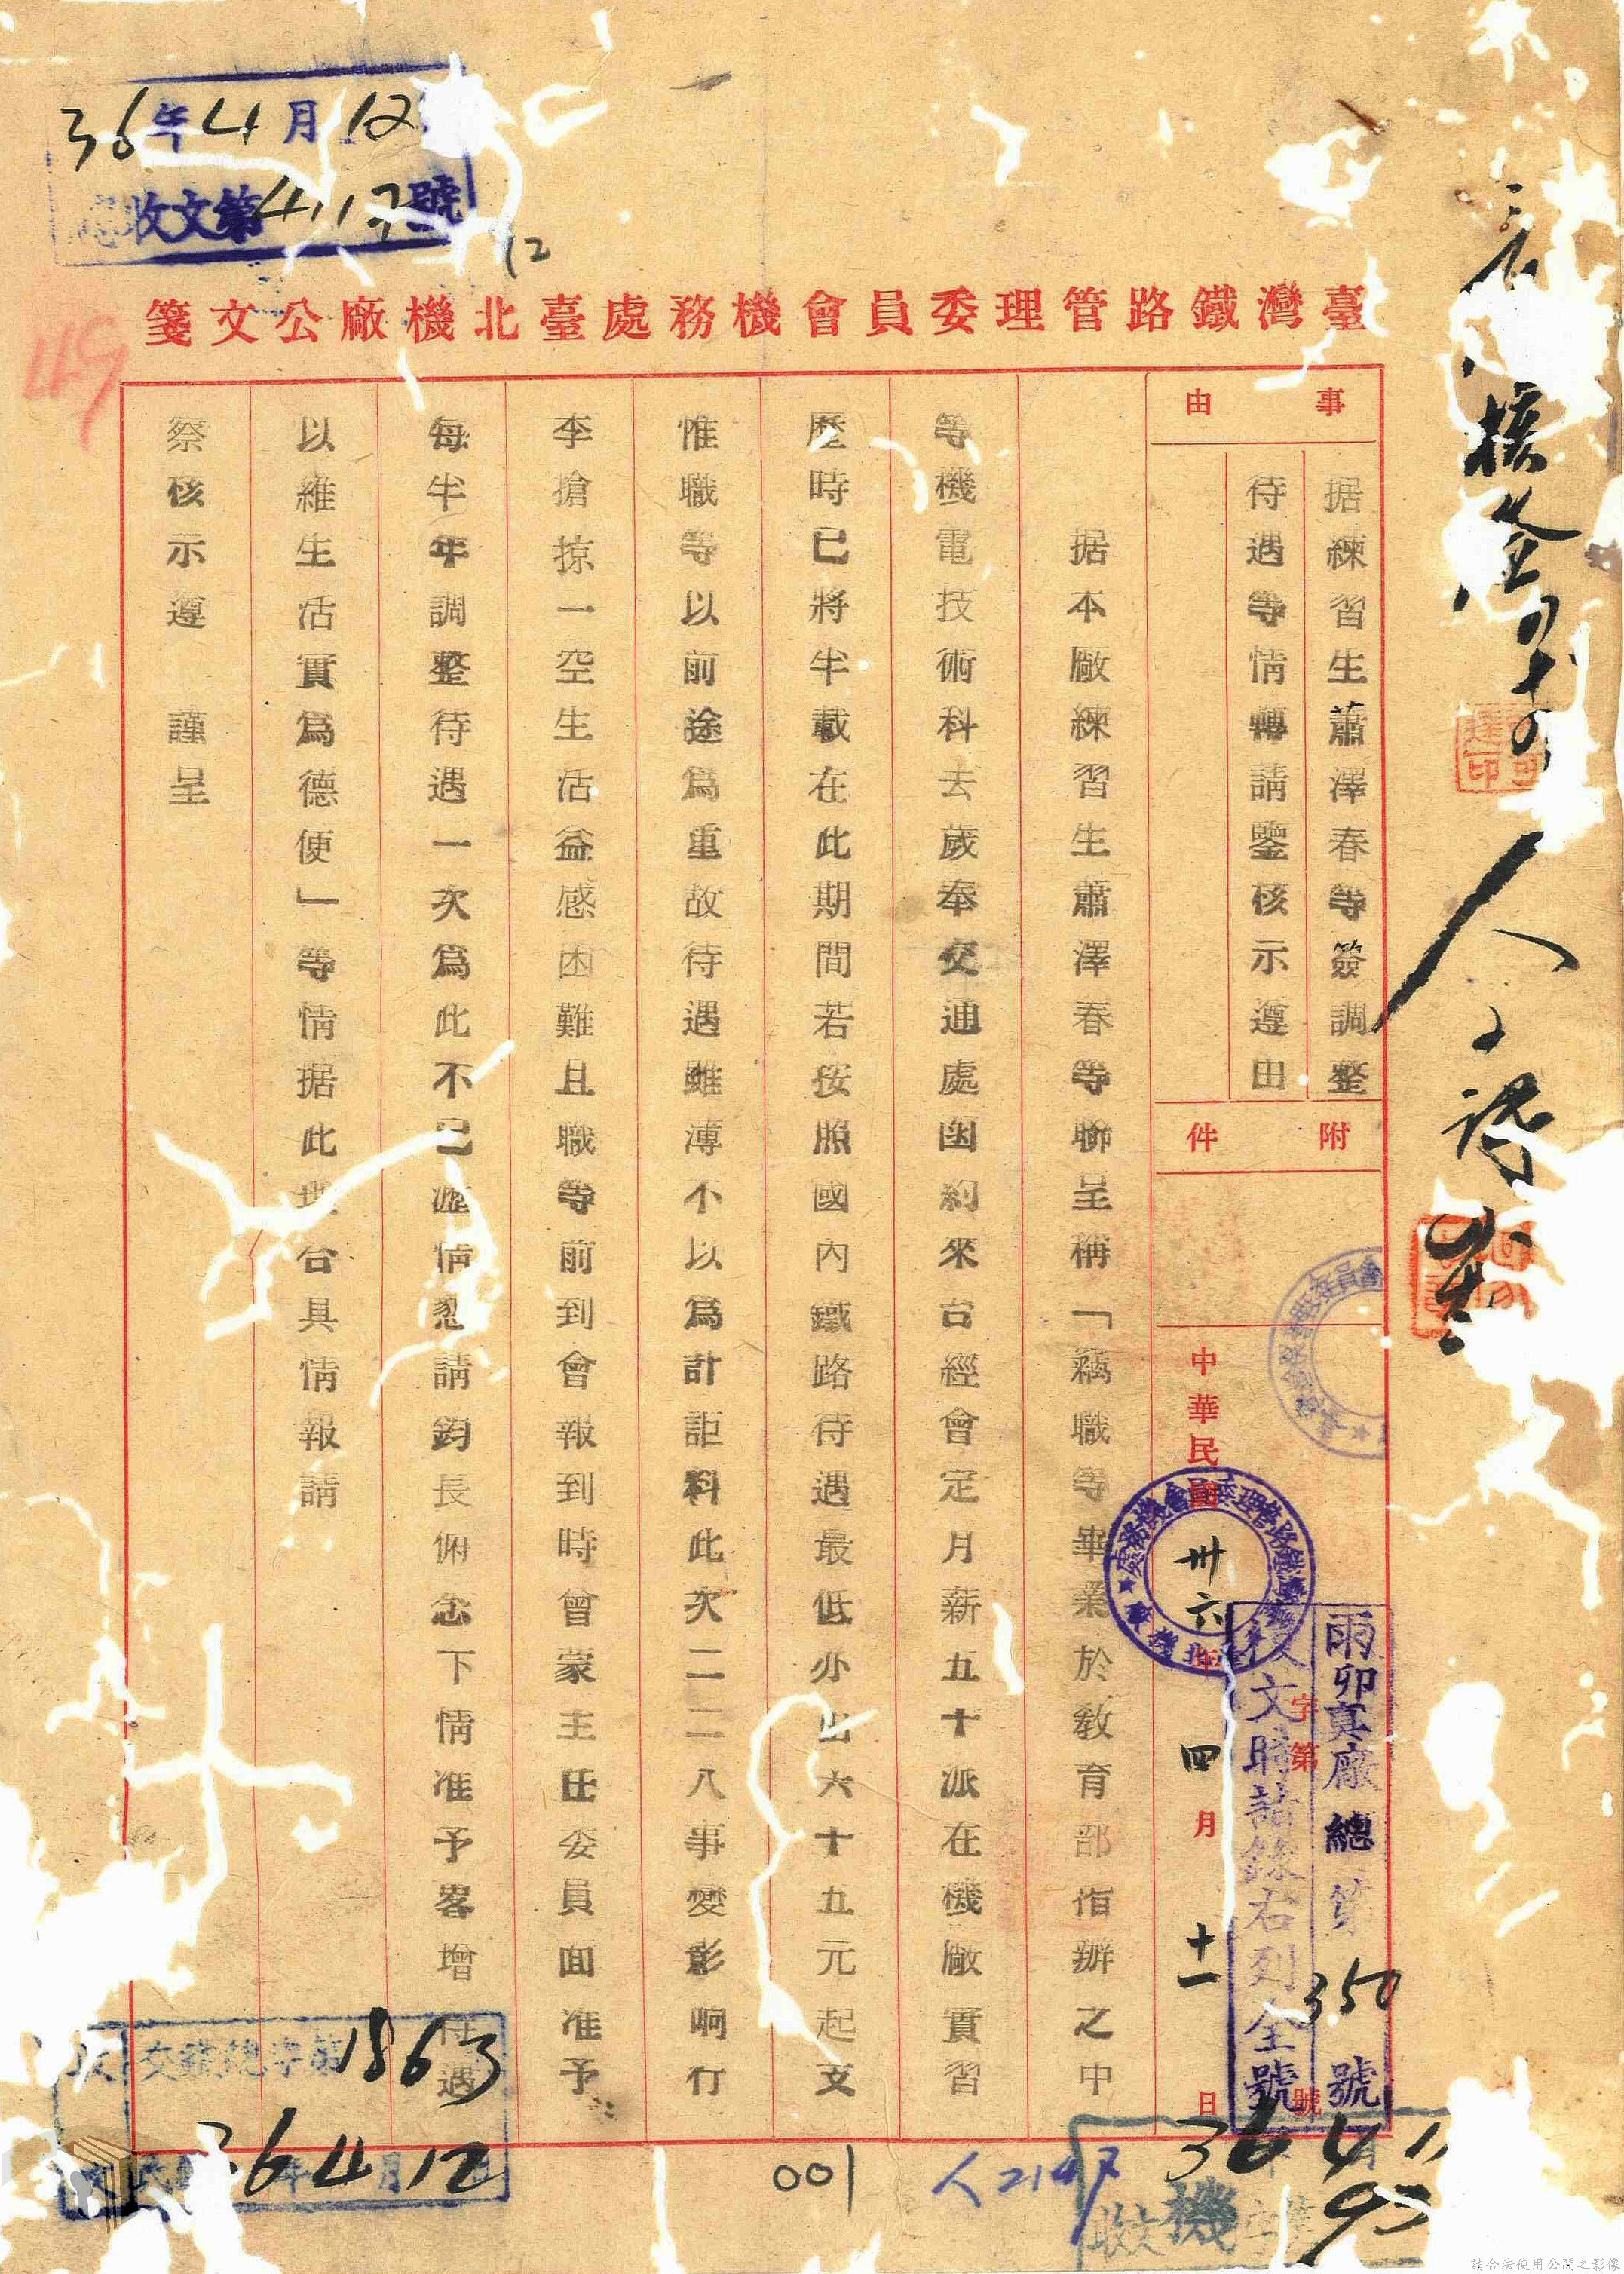 36年4月12
收文第4117號
12
臺灣鐵路管理委員會機務處臺北機廠公文箋
事由
据練習生蕭澤春等簽調整
待遇等情轉請鑒核示遵由
附件
中華民國卅六年四月十一日
字第號
雨卯真廠總第350號
文時請錄右列全號
据本廠練習生蕭澤春等聯呈稱「竊職等畢業於教育部指辦之中
等機電技術科去歲奉交通處函約來台經會定月薪五十派在機廠實習
歷時已將半載在此期間若按照國內鐵路待遇最低亦出六十五元起支
惟職等以前途為重故待遇雖薄不以為計詎料此次二二八事變影响行
李搶掠一空生活益感困難且職等前到會報到時曾蒙主任委員面准予
每半年調整待遇一次為此不已瀝情懇請鈞長俯念下情准予客增待遇
以維生活實為德便」等情据此理合具情報請
察核示遵　謹呈
1863
36年4月12
001
人2147
36 4 11
收文機字第
請合法使用公開之影像